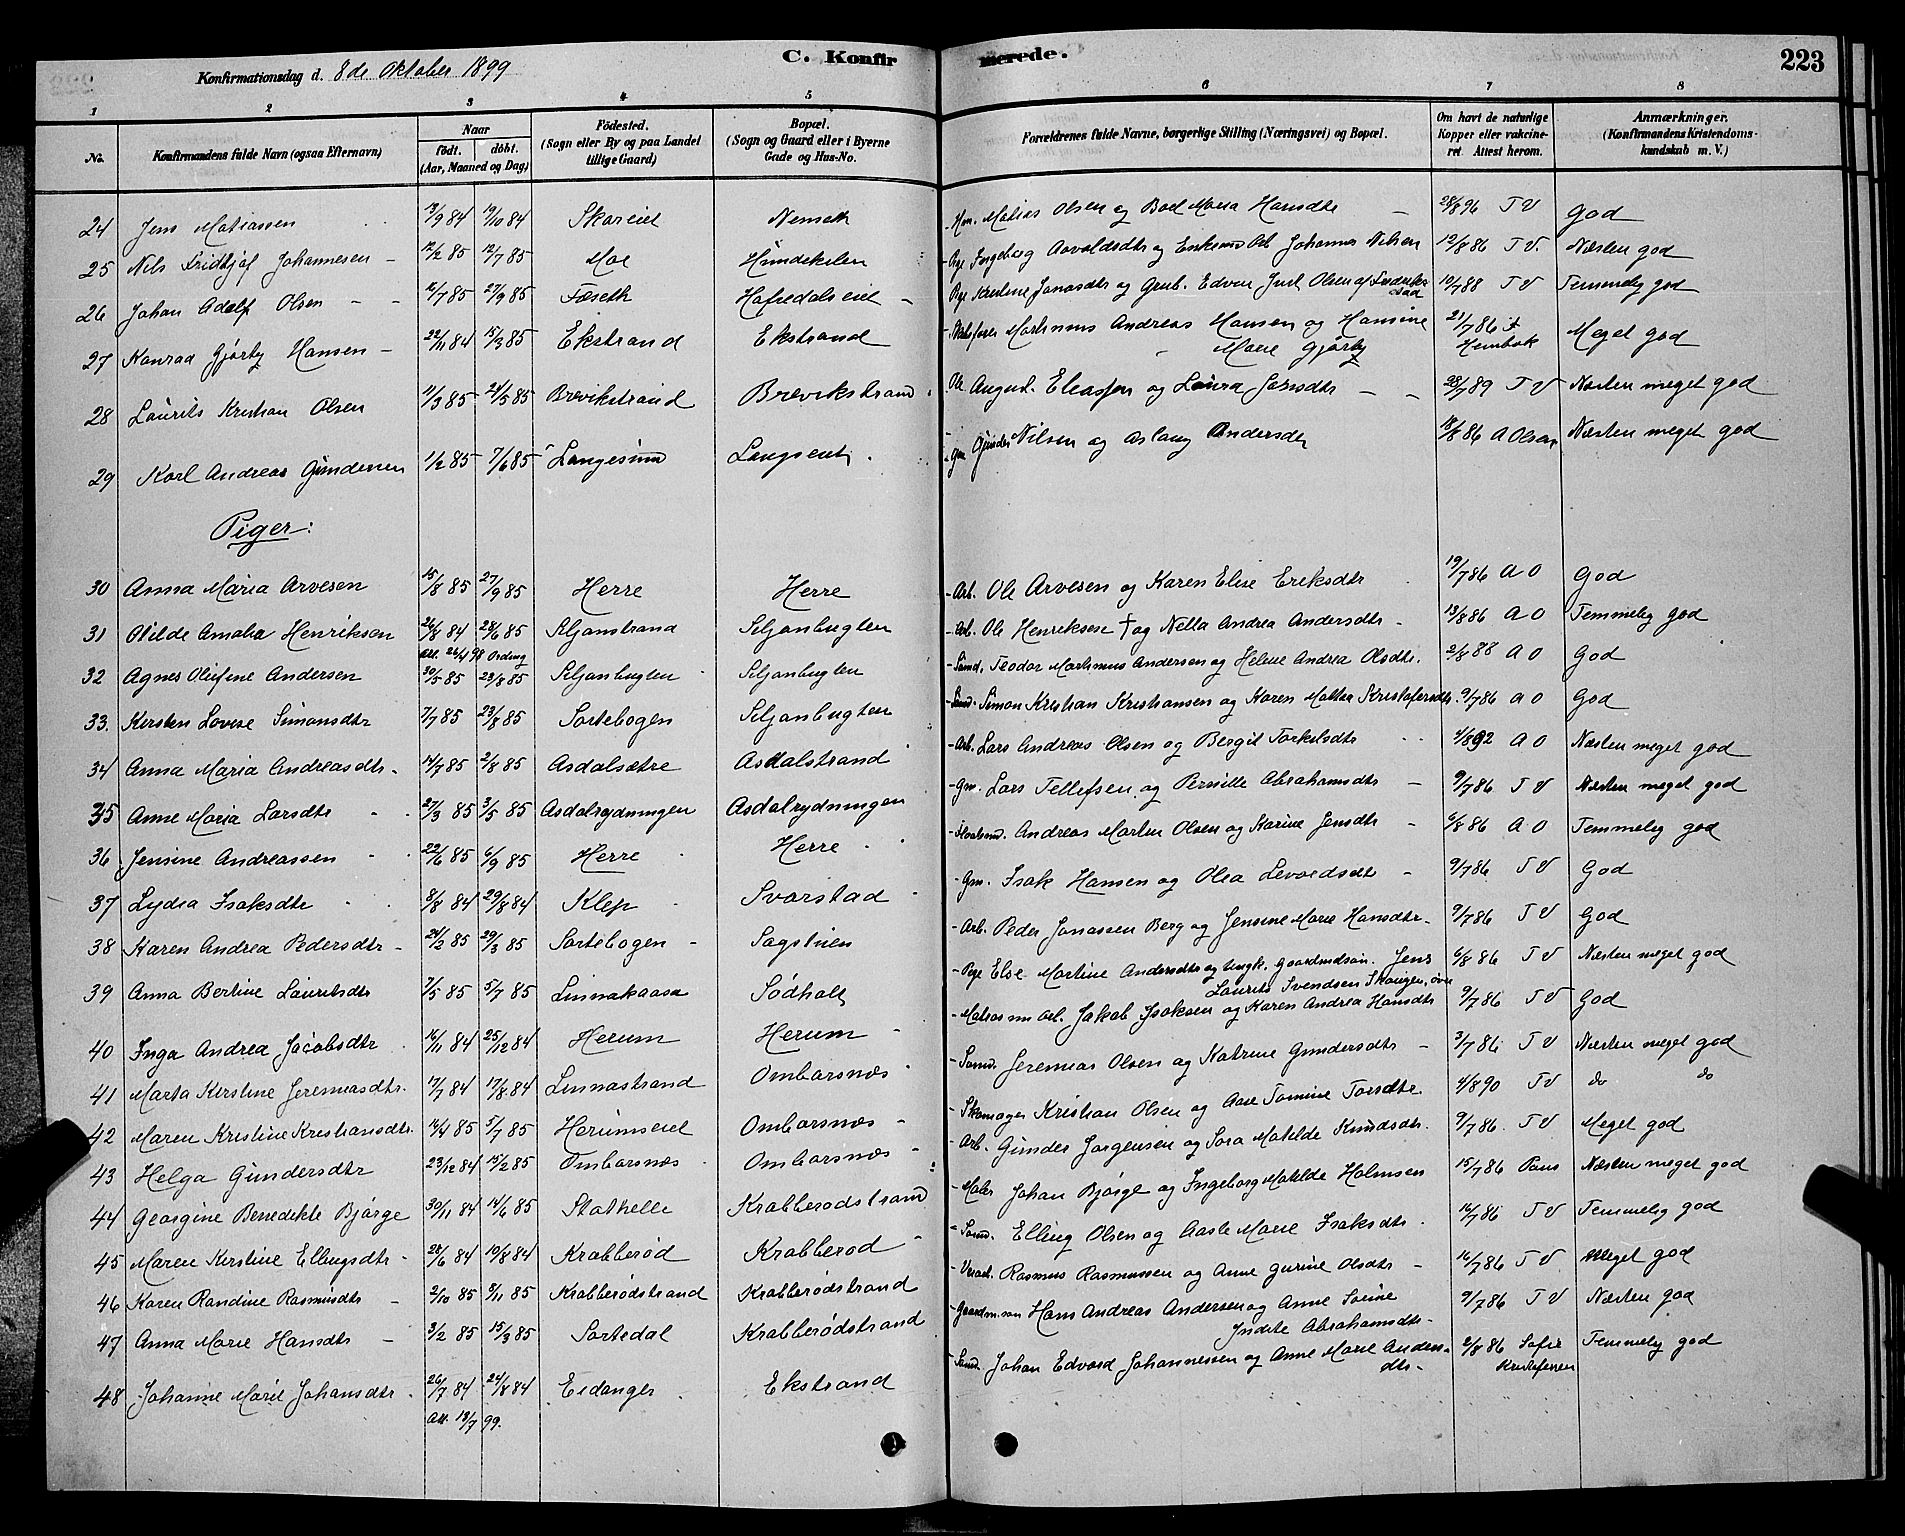 Konfirmationsdag d. 8de Oktober 1899
C. Konfirmerede.
223
1 2 3 4 5 6 7 8
No. Konfirmandens fulde Navn (ogsaa Efternavn) Naar født. døbt. (Aar, Maaned og Dag) Fødested. (Sogn eller By og paa Landet tillige Gaard) Bopæl. (Sogn og Gaard eller i Byerne Gade og Hus-No. Forældrenes fulde Navne, borgerlige Stilling (Næringsvei) og Bopæl. Om havt de naturlige Kopper eller vakcineret. Attest herom. Anmærkninger. (Konfirmandens Kristendomskundskab m. V.)
24 Jens Matiassen 19/10 84 Skareiet Matias Olsen og Bod Maria Hansdtr 28/8 96 T V God
25 Nils Fridthjof Johannesen 12/2 85 12/7 85 Moe Hundekilen Pige Ingeborg Aavoldsdtr og Johannes Nilsen 12/8 86 T V. Næsten god
26 Johan Adolf Olsen 12/7 85 27/9 85 Fæseth Hafredalseiet Pige Kristine Jonasdtr og Edvin Juul Olsen af Frederikstad 10/7 88 T V Temmelig god
27 Konrad Gjörby Hansen 22/11 84 15/3 85 Ekstrand Ekstrand Martinius Andreas Hansen og Hansine Marie Gjörby 21/7 86 Heimbek Meget god
28 Laurits Kristian Olsen 11/3 85 24/5 85 Brevikstrand Brevikstrand Ole August Eliassen og Laura Jensdtr 28/7 89 T V Næsten meget god
29 Karl Andreas Gundersen 1/2 85 7/6 85 Langesund Langseut Gm Gunder Nilsen og Aslaug Andersdtr 18/8 86 A Olsen Næsten meget god
Piger:
30 Anna Maria Arvesen 15/8 85 27/9 85 Herre Herre Arb. Ole Arvesen og Karen Elise Eriksdtr 19/7 86 A O God
31 Otilde Amalia Henriksen 26/8 84 28/6 85 Siljanstrand Siljanbugten Arb. Ole Henriksen † og Nella Andrea Andersdtr 13/8 86 A O Temmelig god
Att. 26/4 98
32 Agnes Olufine Andersen 30/5 85 23/8 85 Siljanbugten Siljanbugten Sømd. Teodor Martinius Andersen og Helene Andrea Olsdtr. 2/8 88 A O God
33. Kirsten Lovise Simonsdtr 7/7 85 23/8 85 Sortebogen Siljanbugten Sømd. Simon Kristian Kristiansen og Karen Mattea Kristofersdtr. 9/7 86 A O God
34 Anna Maria Andreasdtr. 14/7 85 2/8 85 Asdalsætre Asdalstrand Arb. Lars Andreas Olsen og Bergit Torkilsdtr 4/8 92 A O Næsten meget god
35 Anne Maria Larsdtr 27/3 85 3/5 85 Asdalrydningen Asdalrydningen Gm. Lars Tellefsen og Pernille Abrahamsdtr 9/7 86 T V Næsten meget god
36 Jensine Andreassen 22/6 85 6/9 85 Herre Herre Andreas Martin Olsen og Karine Jensdtr 6/8 86 A O Temmelig god
37 Lydia Isaksdtr 8/8 84 29/8 84 Klep Svarstad Gm. Isak Hansen og Olea Levordsdtr 9/7 86 T V God
38 Karen Andrea Pedersdtr 24/2 85 29/3 85 Sortebogen Sagstuen Arb. Peder Jonassen Berg og Jensine Marie Hansdtr 9/7 86 T V God
39 Anna Bertine Lauritsdtr 7/5 85 5/7 85 Linnakaasa Södholt Pige Else Martine Andersdtr og Ungk. Gaardmdsøn Jens Laurits Svendsen Skougen, 6/8 86 T V Næsten meget god
40 Inga Andrea Jacobsdtr 16/11 84 25/12 84 Herum Herum Jakob Isaksen og Karen Andrea Hansdtr 9/7 86 T V God
41 Marta Kirstine Jeremiasdtr. 17/7 84 17/8 84 Linnastrand Ombarsnæs Sømd. Jeremias Olsen og Katrine Gundersdtr 3/7 86 T V Næsten meget god
42 Maren Kristine Kristiansdtr. 16/4 85 5/7 85 Herumseiet Ombarsnæs Skomager Kristian Olsen og Aase Tomine Torsdtr 4/8 90 T V do do
43 Helga Gundersdtr 23/12 84 15/2 85 Ombarsnæs Ombarsnæs Arb. Gunder Jørgensen og Sara Matilde Knudsdtr. 9/7 86 T V Meget god
44 Georgine Benedikte Bjørge 30/11 84 14/6 85 Stathelle Krabberødstrand Maler Johan Bjørge og Ingeborg Matilde Holmsen 15/7 86 Paus Næsten meget god
45 Maren Kirstine Ellingsdtr 28/6 84 10/8 84 Krabberød Krabberød Sømd. Elling Olsen og Aasle Marie Isaksdtr 16/7 86 T V Temmelig god
46 Karen Randine Rasmusdtr 2/10 85 8/11 85 Krabberødstrand Krabberødstrand Rasmus Rasmussen og Anne Gurine Olsdtr 16/7 86 T V Meget god
47 Anna Marie Hansdtr 3/2 85 15/3 85 Sortedal Krabberødstrand Gaardm.søn Hans Andreas Andersen og Anne Indite Abrahamsdtr 9/7 86 T V Næsten god
48 Johanne Marie Johansdtr 26/7 84 24/8 84 Eidanger Ekstrand Sømd. Johan Edvard Johannessen og Anne Marie Andersdtr 2/8 86 Sofie Kristofersen Temmelig god
Att. 13/7 99.